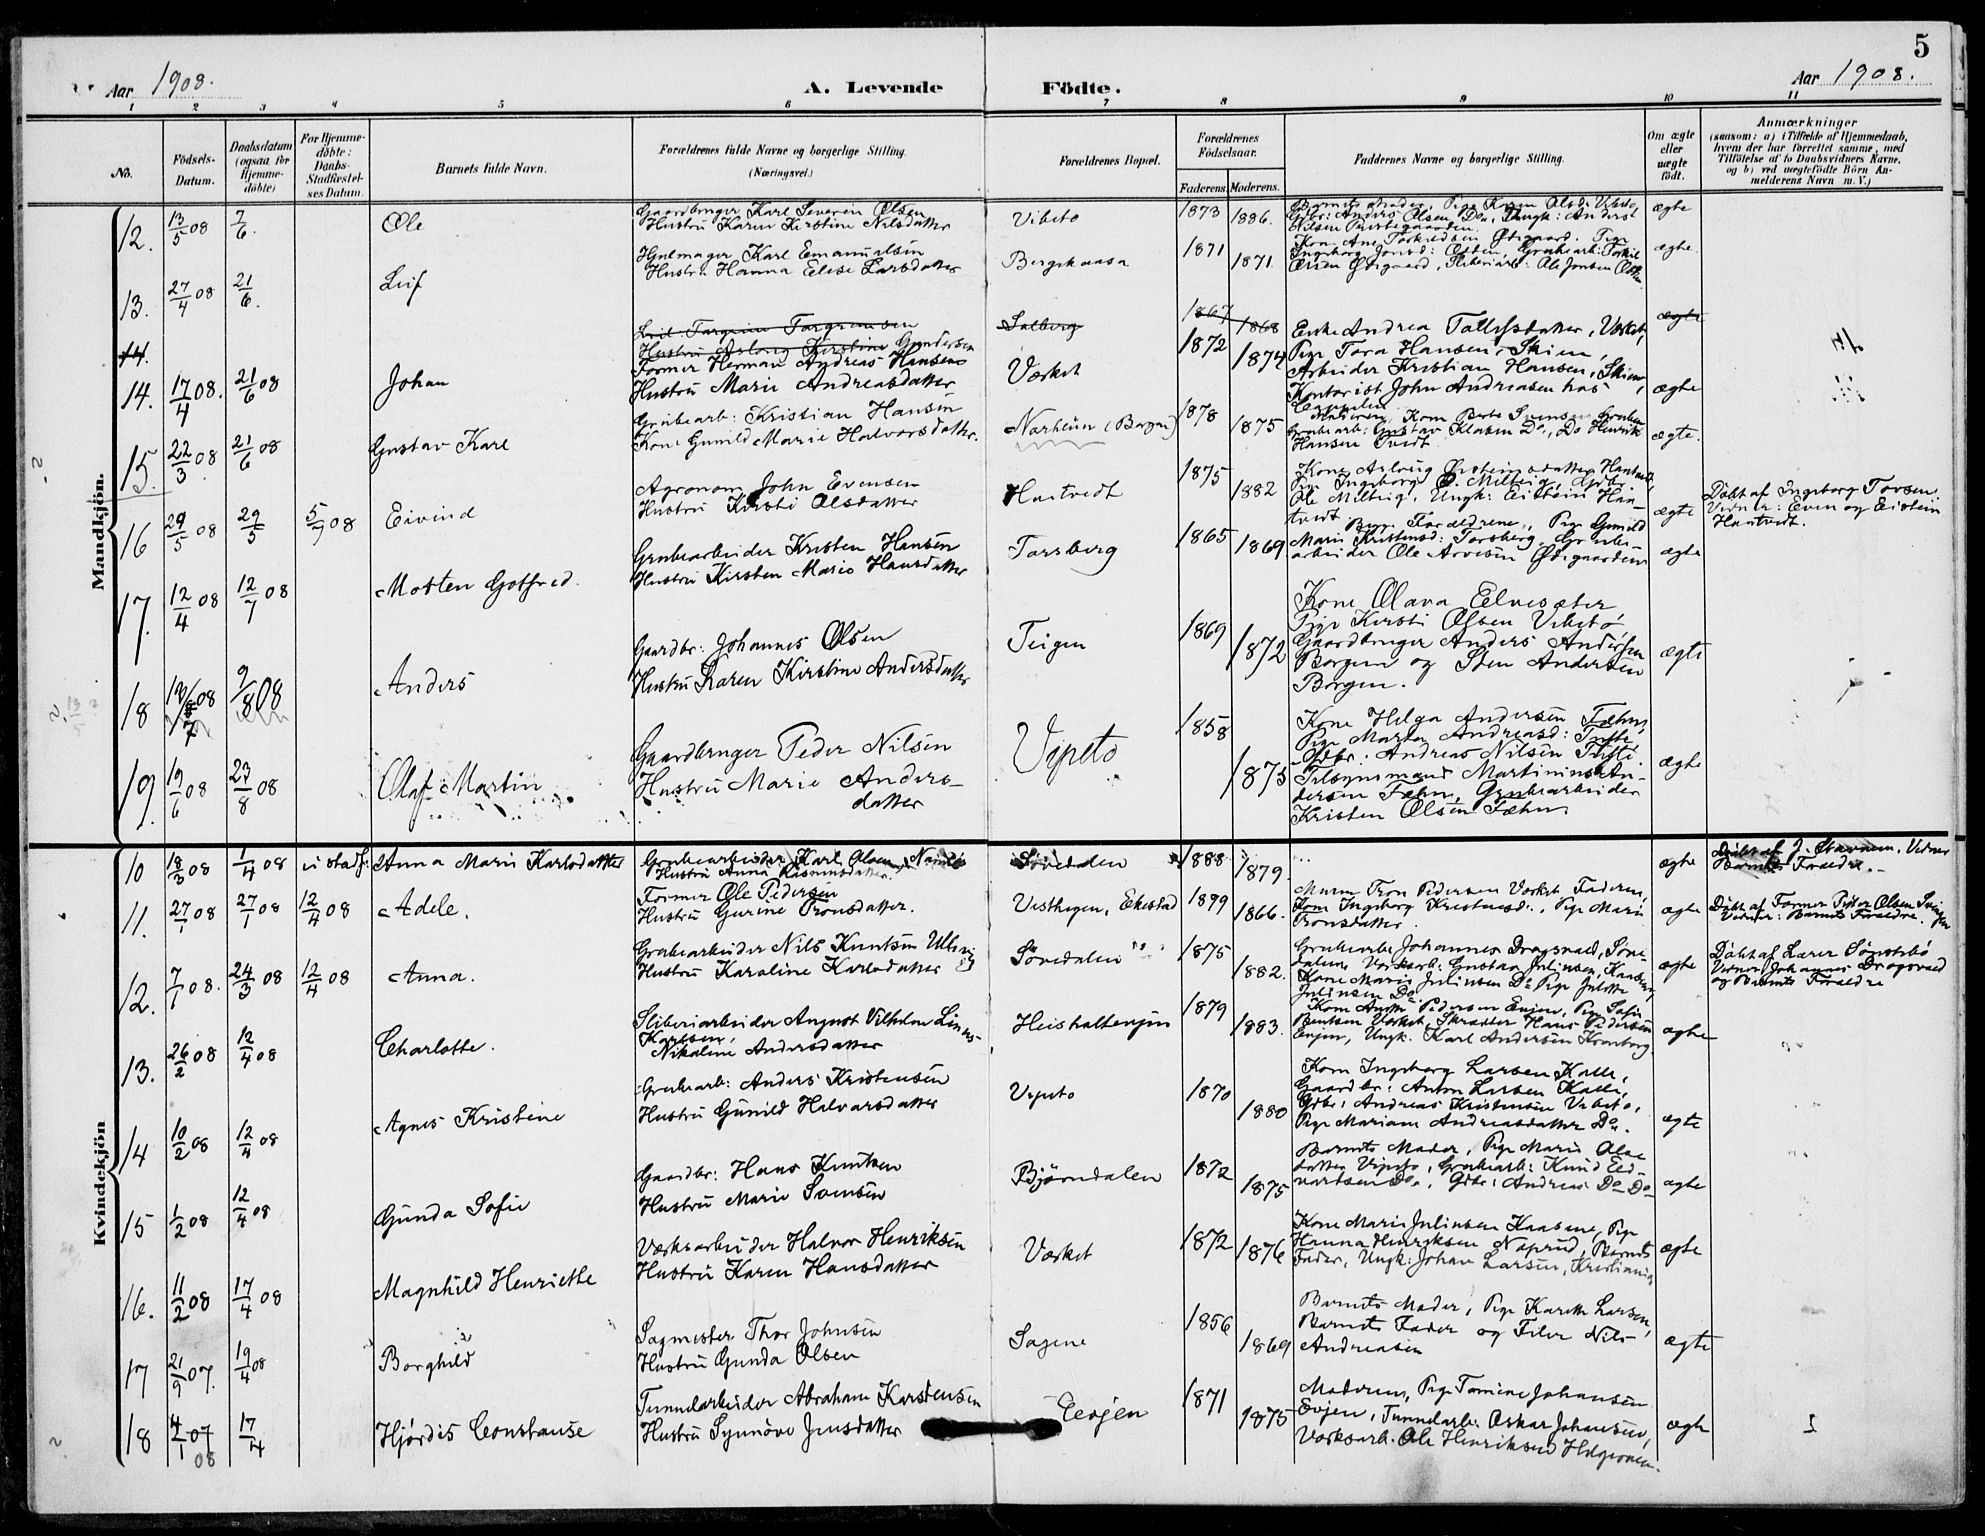 5
Aar 1908.
A. Levende
Födte.
Aar 1908.
1 2 3 4 5 6 7 8 9 10 11
No.
Födsels-
Datum.
Daabsdatum
(ogsaa for
Hjemme-
döbte)
For Hjemme-
döbte:
Daabs-
Stadfæstel-
ses Datum.
Barnets fulde Navn.
Forældrenes fulde Navne og borgerlige Stilling.
(Næringsvei.)
Forældrenes Bopæl.
Forældrenes
Födselsaar.
Faderens. Moderens.
Faddernes Navne og borgerlige Stilling.
Om ægte
eller
uægte
födt.
Anmærkninger
(saasom: a) i Tilfælde af Hjemmedaab,
hvem der har forrettet samme, med
Tilföielse af to Daabsvidners Navne,
og b) ved uægtefödte Börn An-
melderens Navn m. V.)
Mandkjön.
12. 13/5 08 7/6. Ole
Gaardbruger Karl Severin Olsen
Hustru Karen Kirstine Nilsdatter
Vibeto 1873 1886.
Barnets Moder, Pige Karen Olsd: Vibeto,
Gdbr: Anders Olsen Do., Ungk: Anders
Nilsen
ægte
13. 27/4 08 21/6. Leif
Hjulmager Karl Emanuelsen
Hustru Hanna Elise Larsdatter
Bergskaasa 1871 1871
Kone Ane Torkildsen Ödegaard. Pige
Ingeborg Jonsd:
Olsen Ödegaard, Sliberiarb: Ole Jonsen
ægte
14.
Torgrim Torgrimsen
Hustru Aslaug Kirstine Gundersen
Solberg 1867 1868 ægte
14. 17/4 08. 21/6 08 Johan
Former Herman Andreas Hansen
Hustru Marie Andreasdatter
Værket 1872 1874
Enke Andrea Tollefsdatter, Værket,
Pige Tora Hansen, Skien,
Arbeider Kristian Hansen, Skien,
Kontorist John Andreasen
ægte
15. 22/3 08 21/6 08 Gustav Karl
Grubearb: Kristian Hansen
Kone Gunild Marie Halvorsdatter.
Narheim (Borgen) 1878 1875
Moderen, Kone Berte Svensen
Grubearb: Gustav Klausen Do., Do Henrik
Hansen Tveidt
ægte.
16 29/5 08 29/5 5/7 08 Eivind
Agronom John Evensen
Hustru Kirsti Olsdatter
Hantvedt 1875 1882
Kone Aslaug Östeinsdatter Hantvedt,
Pige Ingeborg O. Miltvig, Gdbr.
Ole Miltvig, Ungk: Eistein Han-
tvedt
ægte
Döbt af Ingeborg Torsen.
Vidner: Even og Eistein
Hantvedt.
17. 12/4 08 12/7 08 Morten Gotfred.
Grubearbeider Kristen Hansen
Hustru Kirsten Marie Hansdatter
Torsberg 1865 1869
Begge Forældrene, Pige Gunild
Marie Kristensd: Torsberg, Grube-
arbeider Ole Arvesen Ödegaarden
ægte
18 08 9/8 08 Anders
Gaardbr: Johannes Olsen
Hustru Karen Kirstine Andersdatter
Teigen 1869 1872
Kone Olava Eelvesæter
Pige Kirsti Olsen Vibeto
Gaardbruger Anders Andersen
Borgen og Sten Andersen
Borgen.
ægte
19. 19/6 08 23/8 08 Olaf Martin
Gaardbruger Peder Nilsen
Hustru Marie Anders-
datter
Vipeto 1858 1875
Kone Helga Andersen Fæhn,
Pige Marta Andreasd:
Gdbr: Andreas Nilsen
Tilsynsmand Martinius An-
dersen Fæhn, Grubearbeider
Kristen Olsen Fæhn.
ægte
Kvindekjön
10 18/3 08 1/4 08 Anna Marie Karlsdatter
Grubearbeider Karl Olsen,
Hustru Anna Rasmusdatter.
Sövedalen 1888 1879.
ægte
Döbt af J. Stavnem. Vidner
Barnets Forældre.
11. 27/1 08 27/1 08 12/4 08 Adele.
Former Ole Pedersen
Hustru Gurine Tronsdatter.
Vesthagen, Ekestad 1899 1866.
Murer Tron Pedersen Værket, Faderen,
Kone Ingeborg Kristensd:, Pige Marie
Tronsdatter.
ægte
Döbt af Former Peder Olsen
Vidner: Barnets Forældre.
12. 7/1 08. 24/3 08 12/4 08 Anna.
Grubearbeider Nils Knutsen
Hustru Karoline Karlsdatter
Sövedalen 1875 1882.
Grubearb Johannes Dragsvad, Söve-
dalen, Værksarb: Gustav Julinsen, Kaasene,
Kone Marie Julinsen Do Pige Julette
Julinsen Do.
ægte
Döbt af Lærer Sönstebö
Vidner Johannes Dragsvaad
og Barnets Forældre
13. 26/2 08 12/4 08 Charlotte.
Sliberiarbeider August Vilhelm
Karlsen,
Nikoline Andersdatter
Heisholtenjen 1879 1883.
Kone Anette Pedersen Enjen, Pige Sofie
Bentsen Værket, Skrædder Hans Pedersen
Enjen, Ungk. Karl Andersen Kronborg.
ægte
14 10/2 08 12/4 08 Agnes Kristine
Grubearb: Anders Kristensen
Hustru Gunild Halvorsdatter
Vipeto 1870 1880
Kone Ingeborg Larsen Kalle,
Gaardbr: Anton Larsen Kalle,
Gdbr: Andreas Kristensen Vibeto,
Pige Mariane Andreasdatter Do.
ægte
15 1/2 08 12/4 08 Gunda Sofie
Gaardbr: Hans Knutsen
Hustru Marie Svensen
Björndalen 1872 1875
Barnets Moder, Pige Marie Ols-
datter Vipeto, Grubearb: Knud Ed-
vardsen Do., Gdbr: Andreas Do Do
ægte
16. 11/2 08 17/4 08 Magnhild Henriette
Værksarbeider Halvor Henriksen
Hustru Karen Hansdatter
Værket 1872 1876
Kone Marie Julinsen Kaasene, Pige
Hanna Henriksen Naprud, Barnets
Fader, Ungk: Johan Larsen, Kristiania
ægte
17 21/9 07. 19/4 08 Borghild
Sagmester Thor Johnsen
Hustru Gunda Olsen
Sagene 1856 1869
Barnets Moder, Pige Karette Larsen,
Barnets Fader og Filer Nils
Andreasen
ægte
18 4/1 07 08 17/4 Hjördis Constanse
Tunnelarbeider Abraham Karstensen
Hustru Synnöve Jensdatter
Eevjen 1871 1875
Moderen, Pige Tomine Johansen
Evjen, Tunnelarb: Oskar Johansen,
Værksarb. Ole Henriksen
ægte